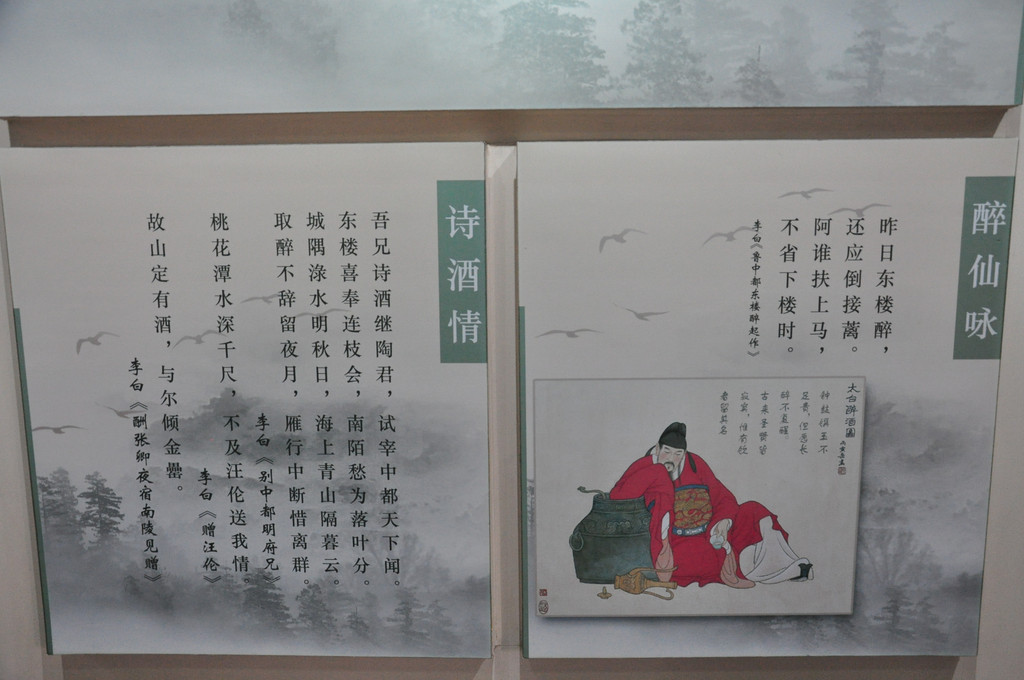 醉仙咏
昨日东楼醉，
还应倒接蓠。
阿谁扶上马，
不省下楼时。
李白《鲁中都东楼醉起作》
太白醉酒图
钟鼓馔玉不
足贵，但愿长
醉不复醒。
古来圣贤皆
寂寞，惟有饮
者留其名
诗酒情
吾兄诗酒继陶君，试宰中都天下闻。
东楼喜奉连枝会，南陌愁为落叶分。
城隅渌水明秋日，海上青山隔暮云。
取醉不辞留夜月，雁行中断惜离群。
李白《别中都明府兄》
桃花潭水深千尺，不及汪伦送我情。
李白《赠汪伦》
故山定有酒，与尔倾金罍。
李白《酬张卿夜宿南陵见赠》